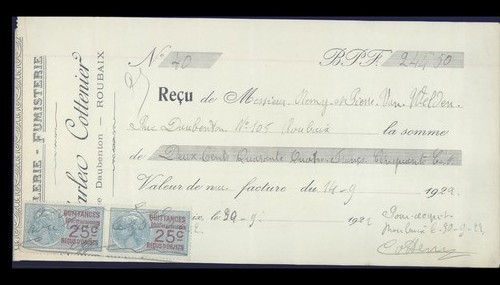 LERIE - FUMISTERIE
Charles Cottenier
Rue Daubenton — ROUBAIX
N° 40 B.P.F. 244,50
Reçu de Messieurs Remy et Pierre Van
Rue Daubenton N° 105 Roubaix la somme
de Deux Cents Quarante Quatre Francs Cinquante Cent.
Valeur de ma facture du 14-9 1922
Roubaix, le 30-9 1922
Pour acquit
Roubaix le 30-9-22
Cottenier
QUITTANCES
25c
REÇUS D'OBJETS
QUITTANCES
25c
REÇUS D'OBJETS